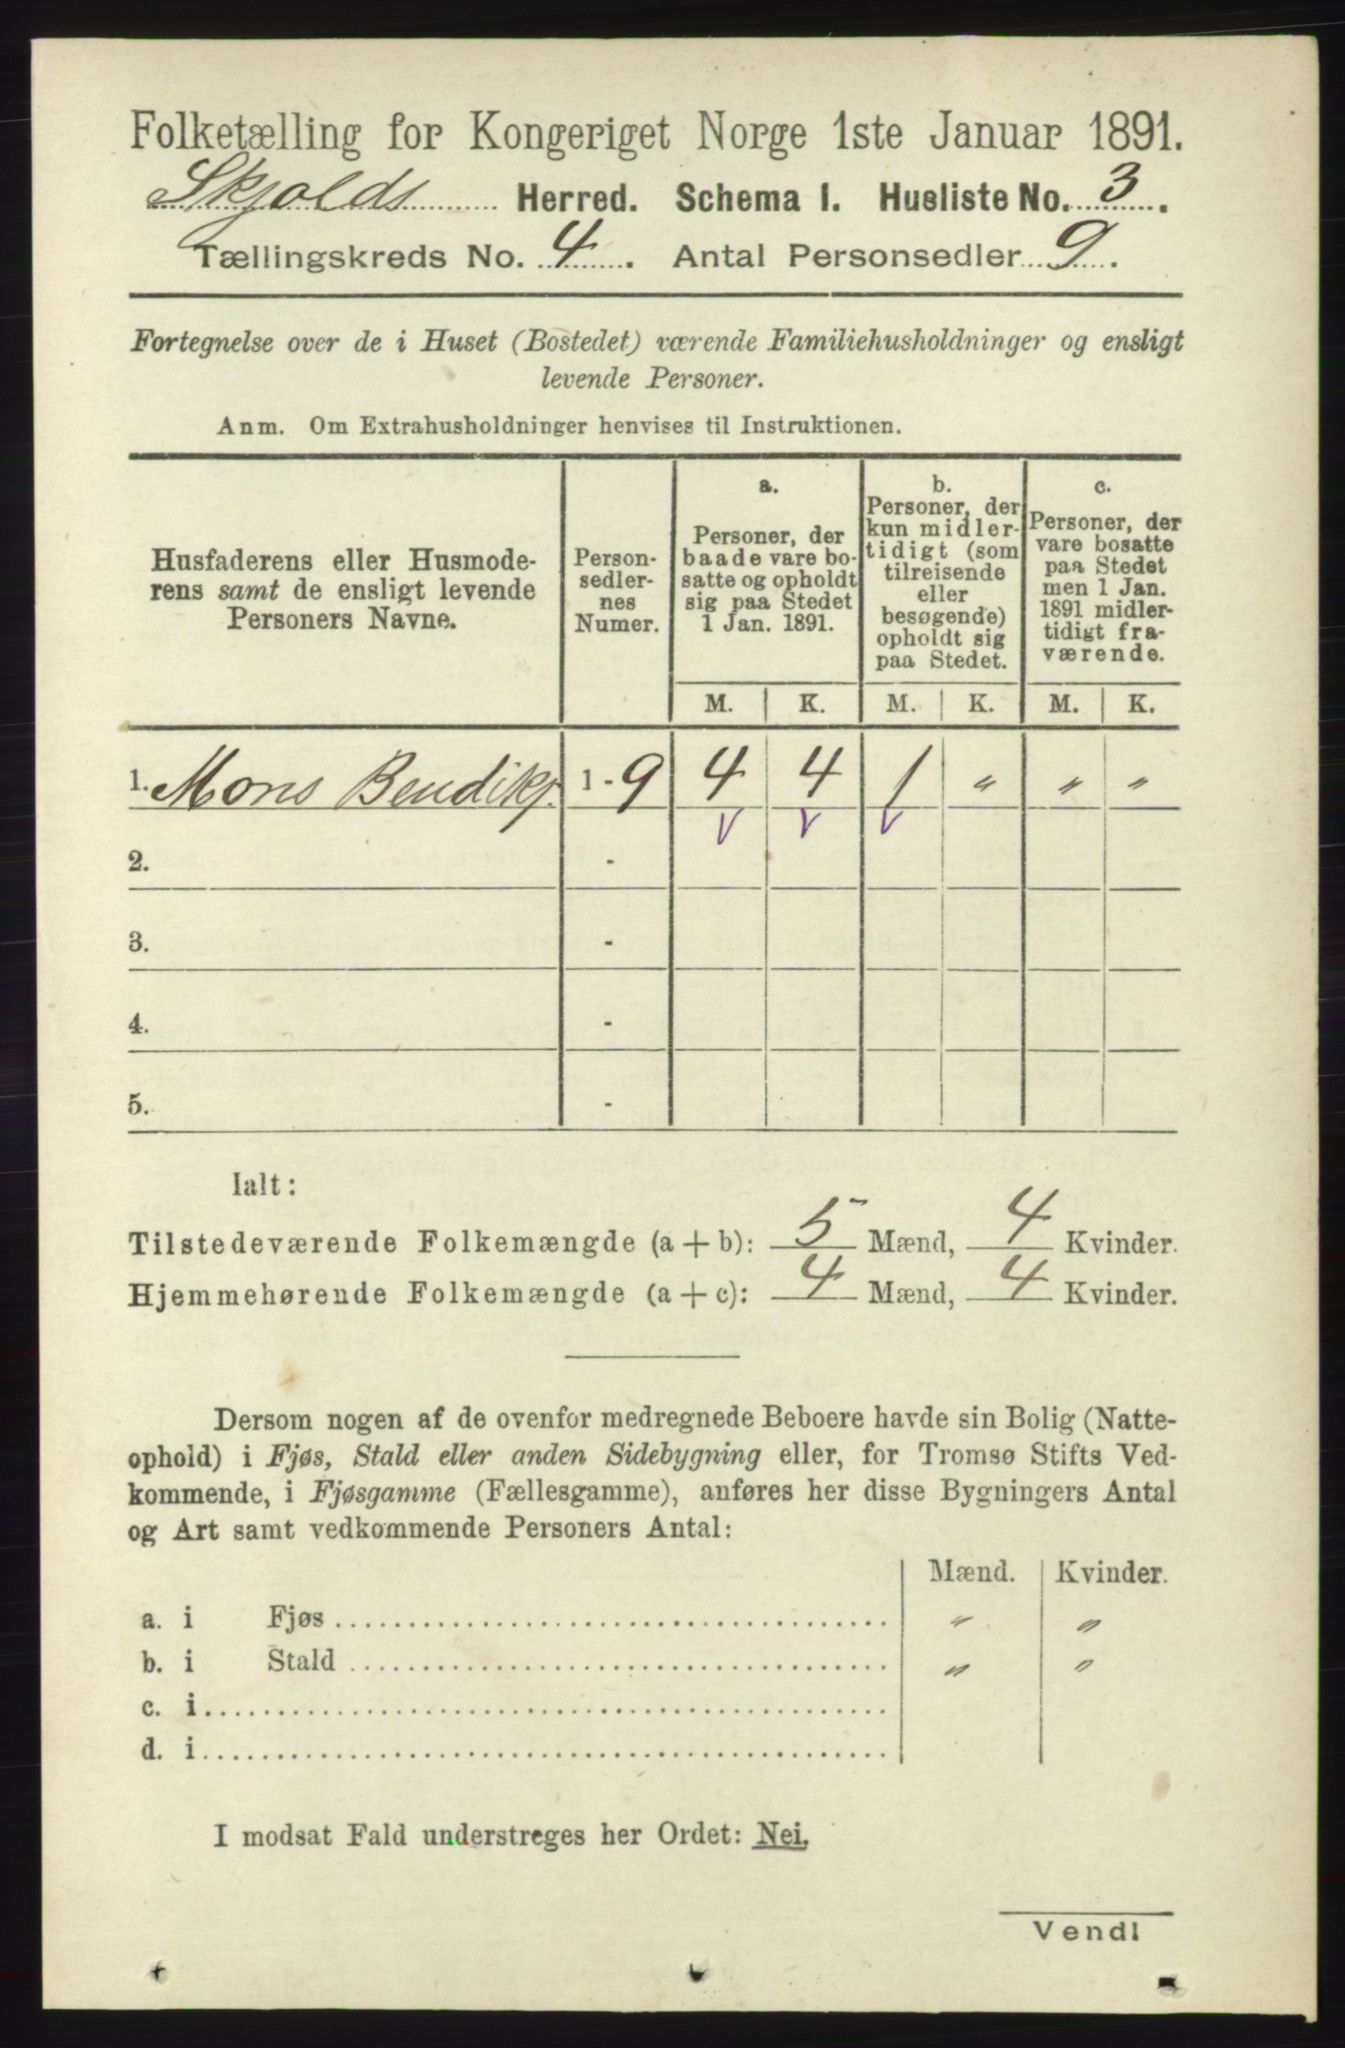 Folketælling for Kongeriget Norge 1ste Januar 1891.
Skjolds Herred. Schema I. Husliste No. 3.
Tællingskreds No. 4. Antal Personsedler 9.
Fortegnelse over de i Huset (Bostedet) værende Familiehusholdninger og ensligt
levende Personer.
Anm. Om Extrahusholdninger henvises til Instruktionen.
Husfaderens eller Husmode-
rens samt de ensligt levende
Personers Navne.
Person-
sedler-
nes
Numer.
a.
Personer, der
baade vare bo-
satte og opholdt
sig paa Stedet
1 Jan. 1891.
b.
Personer, der
kun midler-
tidigt (som
tilreisende
eller
besøgende)
opholdt sig
paa Stedet.
c.
Personer, der
vare bosatte
paa Stedet
men 1 Jan.
1891 midler-
tidigt fra-
værende.
M. K. M. K. M. K.
1. Mons Bendiks. 1 - 9 4 4 1 " " "
v v v
2. -
3. -
4. -
5. -
Ialt:
Tilstedeværende Folkemængde (a + b): 5 Mænd, 4 Kvinder.
Hjemmehørende Folkemængde (a + c): 4 Mænd, 4 Kvinder.
Dersom nogen af de ovenfor medregnede Beboere havde sin Bolig (Natte-
ophold) i Fjøs, Stald eller anden Sidebygning eller, for Tromsø Stifts Ved-
kommende, i Fjøsgamme (Fællesgamme), anføres her disse Bygningers Antal
og Art samt vedkommende Personers Antal:
Mænd. Kvinder.
a. i Fjøs " "
b. i Stald " "
c. i
d. i
I modsat Fald understreges her Ordet: Nei.
Vendl